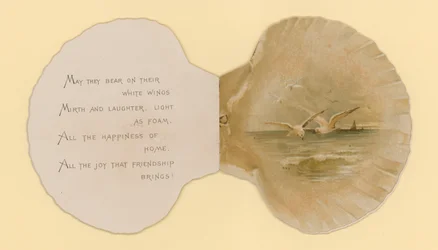 MAY THEY BEAR ON THEIR
WHITE WINGS
MIRTH AND LAUGHTER, LIGHT
AS FOAM,
ALL THE HAPPINESS OF
HOME,
ALL THE JOY THAT FRIENDSHIP
BRINGS!